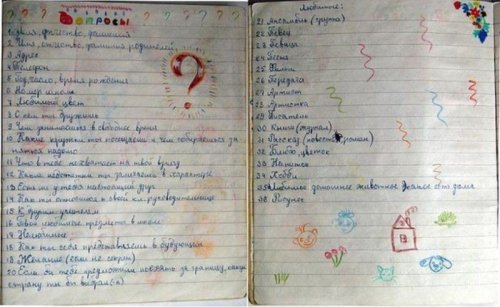 Вопросы
1. Имя, отчество, фамилия
2. Имя, отчество, фамилия родителей
3. Адрес
4. Телефон
5. Год, число, время рождения
6. Номер школы
7. Любимый цвет
8. С кем ты дружишь
9. Чем занимаешься в свободное время
10. Какие кружки ты посещаешь и чем собираешься за-
няться
11. Что в тебе
12. Какие недостатки ты замечаешь в характере
13. Есть ли у тебя настоящий друг
14. Как ты относишься к своей кл. руководительнице
15. К другим учителям
16. Твой любимый предмет в школе
17. Нелюбимые
18. Как ты себя представляешь в будущем
19. Желание (если не секрет)
20. Если бы тебе предложили поехать за границу, какую
страну ты бы выбрал(-а)
Любимые:
21 Ансамбль (группа)
22 Певец
23 Певица
24 Песня
25 Фильм
26 Передача
27 Артист
28 Артистка
29 Писатель
30 (журнал)
31 Рассказ (повесть, роман)
32 Блюдо, цветок
33 Напиток
34 Хобби
35 Любимое домашнее животное
36 Рисунок